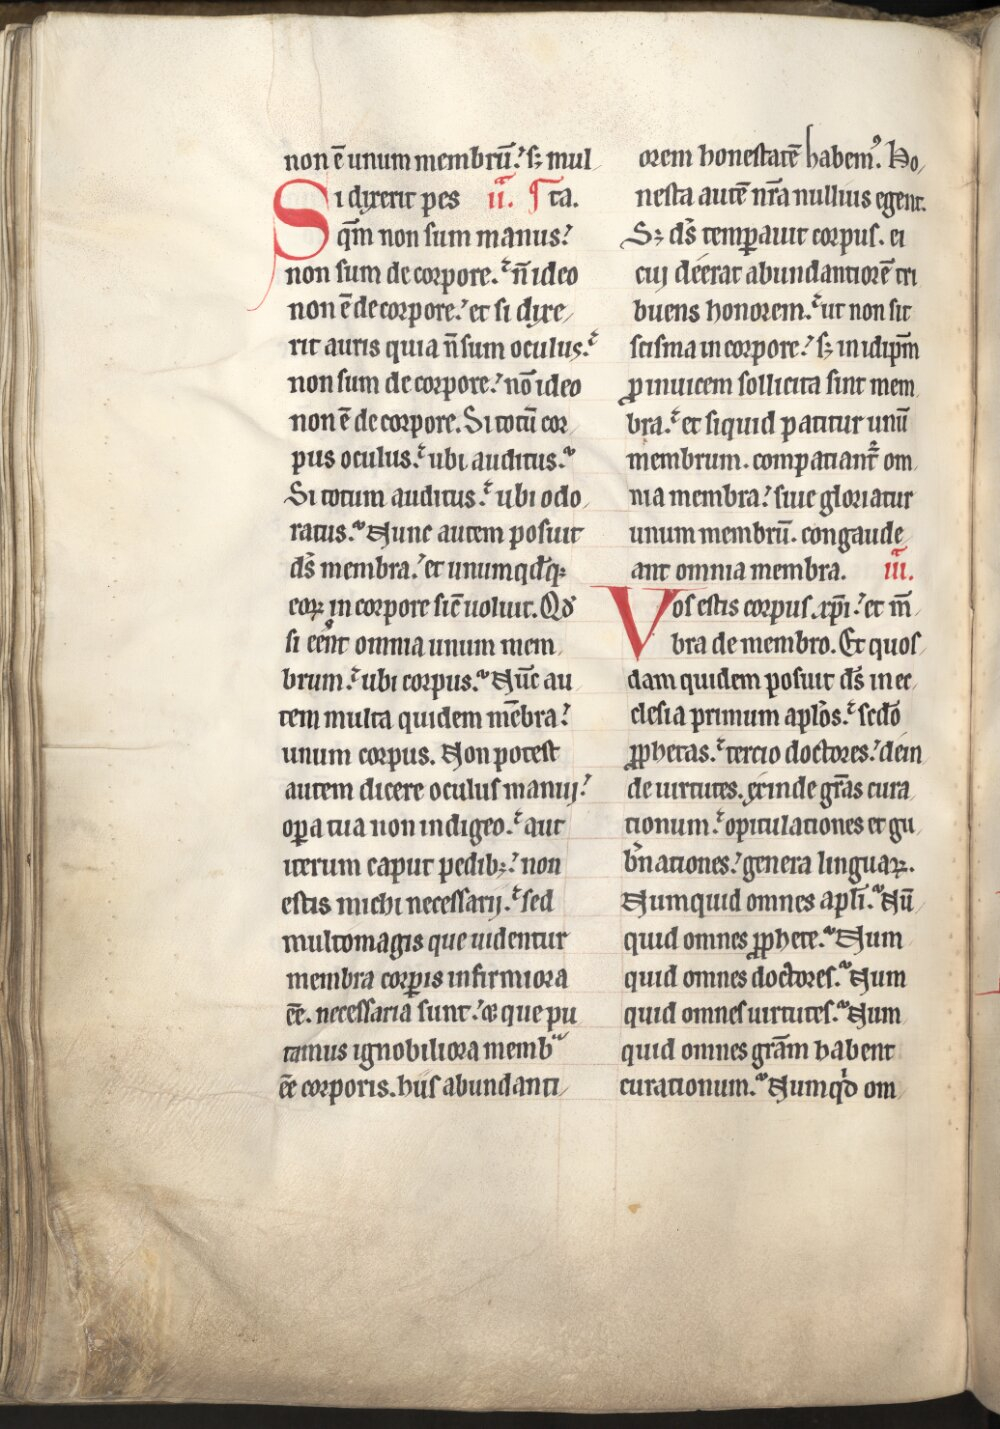 non ē unum membrū. sꝫ mul
Si dixerit pes ii. ¶ ta.
qm̄ non sum manus.
non sum de corpore. n̄ ideo
non ē de corpore. et si dixe
rit auris quia n̄ sum oculus.
non sum de corpore. nō ideo
non ē de corpore. Si totū cor
pus oculus. ubi auditus.
Si totum auditus. ubi odo
ratus. Nunc autem posuit
ds̄ membra. et unumqd̄qꝫ
eoꝝ in corpore sic̄ uoluit. Qd
si eēnt omnia unum mem
brum. ubi corpus. Nūc au
tem multa quidem mēbra.
unum corpus. Non potest
autem dicere oculus manuj.
oꝑa tua non indigeo. aut
iterum caput pedibꝫ. non
estis michi necessarij. sed
multomagis que uidentur
membra corꝑis infirmiora
eē. necessaria sunt. et que pu
tamus ignobiliora membᵃ
eē corporis. hiis abundanti
orem honestatē habemꝰ. Ho
nesta autē nr̄a nullius egent.
Sꝫ ds̄ temꝑauit corpus. ei
cuj deerat abundantiorē tri
buens honorem. ut non sit
scisma in corpore. sꝫ in idipm̄
ꝓ inuicem sollicita sint mem
bra. et siquid patitur unū
membrum. compatiantr̄ om
nia membra. siue gloriatur
unum membrū. congaude
ant omnia membra. iii.
Vos estis corpus xp̄i. et m̄
bra de membro. Et quos
dam quidem posuit ds̄ in ec
clesia primum aplōs. scd̄o
ꝓphetas. tercio doctores. dein
de uirtutes. exinde grās cura
tionum. opitulationes et gu
b̄nationes. genera linguaꝝ.
Numquid omnes apli̅. Nū
quid omnes ꝓphete. Num
quid omnes doctores. Num
quid omnes uirtutes. Num
quid omnes grām habent
curationum. Numqd om